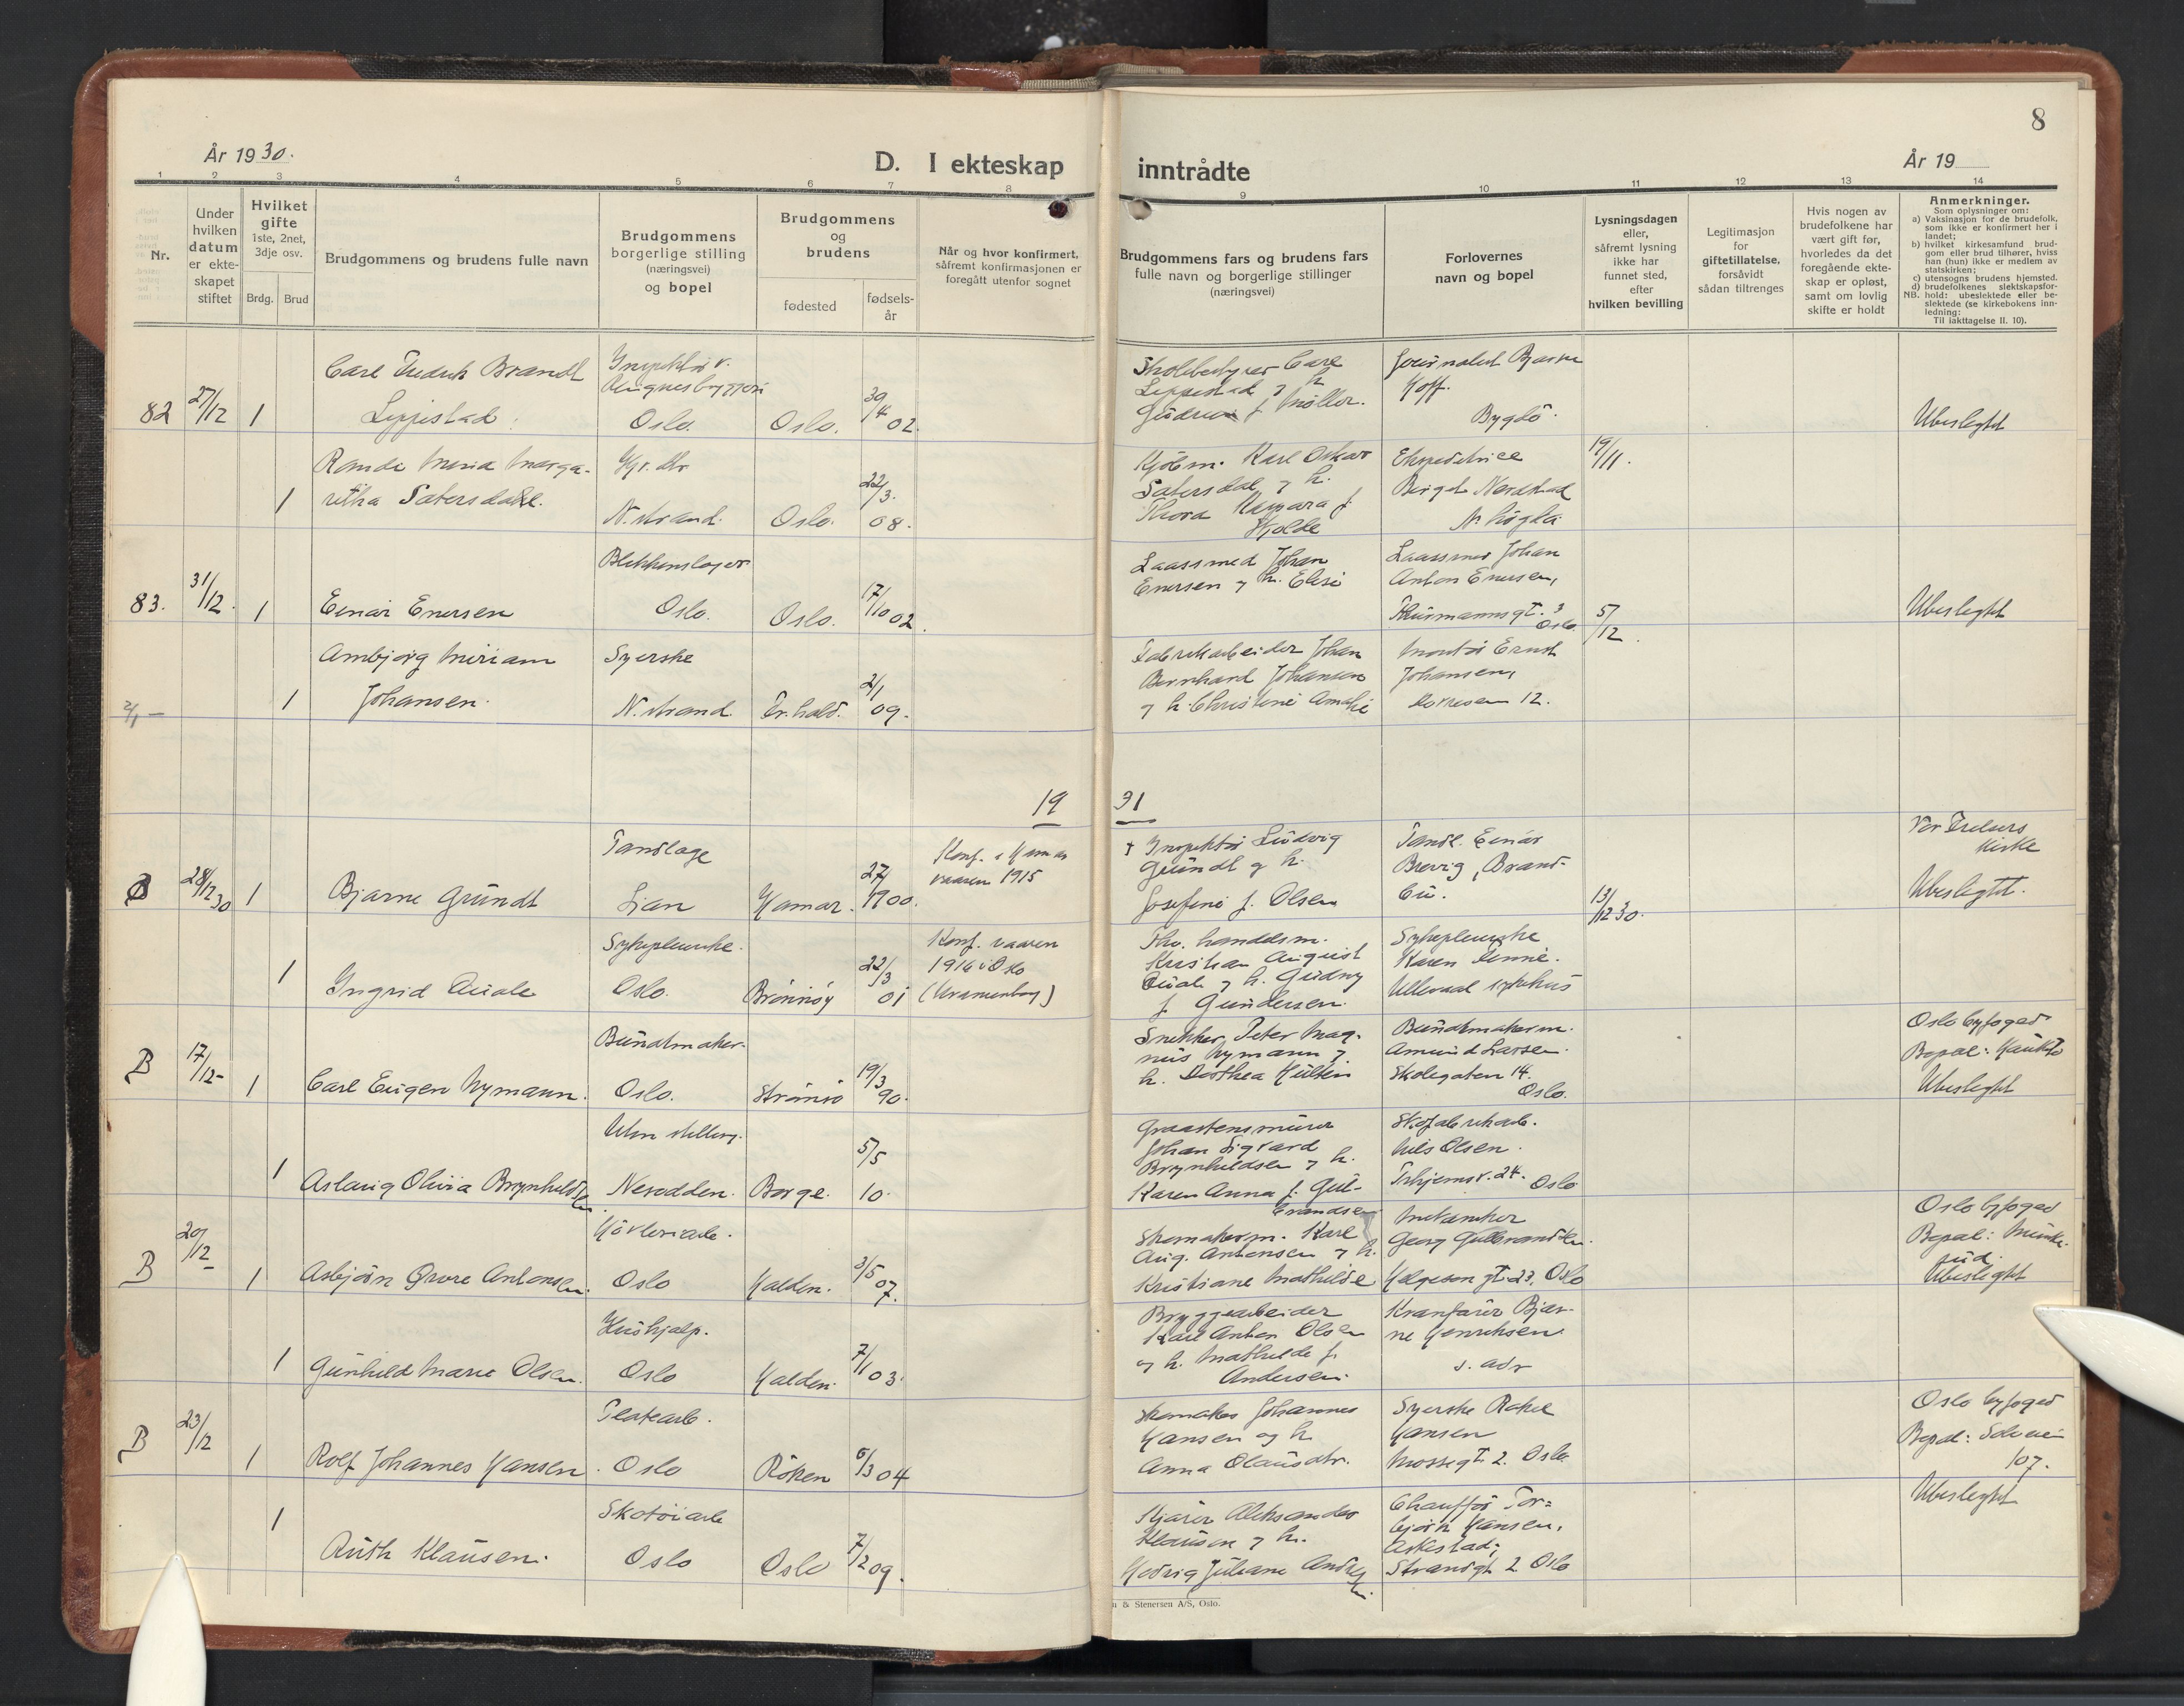 8
År 1930.
D. I ekteskap
inntrådte
År 19
1
2
3
4
5
6
7
8
9
10
11
12
13
14
Nr.
Under
hvilken
datum
er ekte-
skapet
stiftet
Hvilket
gifte
1ste, 2net,
3dje osv.
Brdg.
Brud
Brudgommens og brudens fulle navn
Brudgommens
borgerlige stilling
(næringsvei)
og bopel
Brudgommens
og
brudens
fødested
fødsels-
år
Når og hvor konfirmert,
såfremt konfirmasjonen er
foregått utenfor sognet
Brudgommens fars og brudens fars
fulle navn og borgerlige stillinger
(næringsvei)
Forlovernes
navn og bopel
Lysningsdagen
eller,
såfremt lysning
ikke har
funnet sted,
efter
hvilken bevilling
Legitimasjon
for
giftetillatelse,
forsåvidt
sådan tiltrenges
Hvis nogen av
brudefolkene har
vært gift før,
hvorledes da det
foregående ekte-
skap er opløst,
samt om lovlig
skifte er holdt
Anmerkninger.
Som oplysninger om:
a) Vaksinasjon for de brudefolk,
som ikke er konfirmert her i
landet;
b) hvilket kirkesamfund brud-
gom eller brud tilhører, hviss
han (hun) ikke er medlem av
statskirken;
c) utensogns brudens hjemsted.
d) brudefolkenes slektskapsfor-
NB. hold: ubeslektede eller be-
slektede (se kirkebokens inn-
ledning:
Til iakttagelse II. 10).
82
27/12
1
Carl Fredrik Brandt
Leppestad
Oslo.
Oslo.
30/4 02.
Skolebestyrer Carl
Leppestad og h.
Gudrun f. Møller.
Journalist Bjarne
Hoff.
Bygdö.
Ubeslegtet
1
Randi Maria Marga-
retha Satersdal.
N.strand.
Oslo.
22/3.
08.
Kjöbm. Karl Oskar
Satersdal og h.
Thora Ragnara f.
Kjolde
Ekspeditrice
Birgit Nordstad
19/11.
83.
31/12.
1
Einar Enersen
Blikkenslager
Oslo.
Oslo.
17/10 02.
Laassmed Johan
Enersen og h. Elise
Laassmed Johan
Anton Enersen,
Oslo.
5/12.
Ubeslegtet
2/1 —
1
Ambjörg Miriam
Johansen.
Syerske
N.strand.
Fr.hald.
2/1
09.
Fabrikarbeider Johan
Bernhard Johansen
og h. Christine Amalie
Montör Ernst
Johansen,
12.
19
31
B
28/12 30
1
Bjarne Gründt
Tandlæge
Ljan
Hamar.
27/
1900.
Konf. i Hamar
vaaren 1915
† Inspektör Ludvig
Gründt og h.
Josefine f. Olsen
Tandl. Einar
Brevig, Brand-
bu.
13/12 30.
Vor Frelsers
kirke
Ubeslegtet.
1
Ingrid Quale
Sykepleierske.
Oslo.
Brönnöy
22/3
01
Konf. vaaren
1916 i Oslo
(Uranienborg)
Fhv. handelsm.
Kristian August
Quale og h. Gudny
f. Gundersen.
Sykepleierske
Karen
Ullevaal sykehus
B
17/12-
1
Carl Eugen Nymann.
Buntmaker.
Oslo.
Strömsö
19/3
90.
Snekker Peter Mag-
nus Nymann og
h. Dorthea Hulten
Buntmakerm.
Amund Larsen.
Skolegaten 14.
Oslo.
Oslo byfoged
Bopæl: Hauketo
Ubeslegtet
1
Aslaug Olivia Brynhildsen
Uten stilling.
Nesodden.
Borge.
5/5
10.
Graastensmurer
Johan Sigvard
Brynhildsen og h.
Karen Anna f. Gul-
brandsen
Skofabrikarb.
Nils Olsen.
24. Oslo
B
20/12-
1
Asbjörn Grore Antonsen.
Hövleriarb.
Oslo
Halden.
3/5 07.
Skomakerm. Karl
Aug. Antonsen og h.
Kristiane Mathilde
Mekaniker
Georg Gulbrandsen.
Helgesens gt. 23. Oslo
Oslo byfoged
Bopæl: Munke-
rud.
Ubeslegtet
1
Gunhild Marie Olsen.
Hushjælp.
Oslo
Halden.
7/1 03.
Bryggearbeider
Karl Anton Olsen
og h. Mathilde f.
Andersen.
Kranförer Bjar-
ne Henriksen
s. adr
B
23/12
1
Rolf Johannes Hansen.
Platearb.
Oslo
Röken
6/3 04
Skomaker Johannes
Hansen og h.
Anna Olausdtr.
Syerske Rakel
Hansen
Mossegt. 2. Oslo
Oslo byfoged
Bopæl:
107.
Ubeslegtet
1
Ruth Klausen.
Skotöiarb
Oslo
Oslo
7/2 09.
Kjörer Aleksander
Klausen og h.
Hedvig Juliane Andresen
Chaufför Tor-
björn Hansen,
Askestad;
Strandgt 2 Oslo
& Stenersen A/S, Oslo.